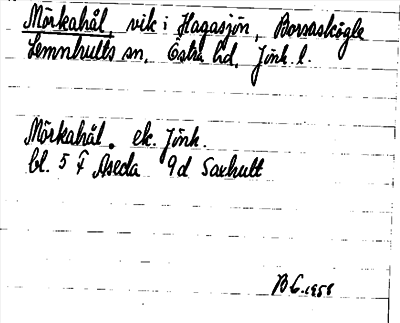 Mörkahål, vik i Hagasjön, Borsaskögle
Lemnhults sn, Östra hd, Jönk. l.
Mörkahål. ek. Jönk.
bl. 5 F Åseda 9d Saxhult
1958